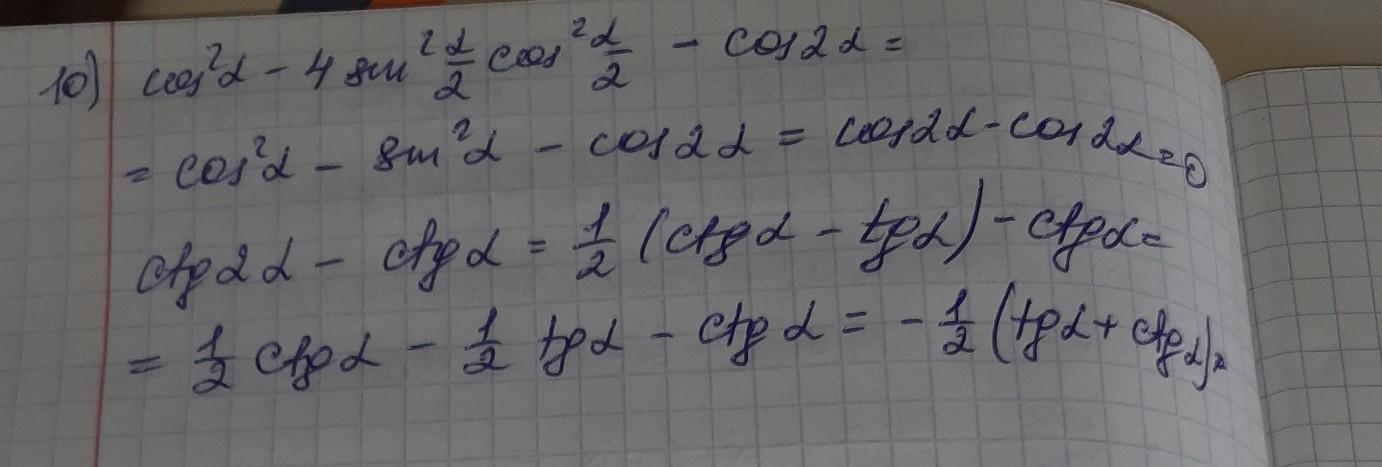 10) cos²α - 4 sin² α/2 cos² α/2 - cos2α =
= cos²α - sin²α - cos2α = cos2α - cos2α = 0
ctg2α - ctgα = 1/2 (ctgα - tgα) - ctgα =
= 1/2 ctgα - 1/2 tgα - ctgα = - 1/2 (tgα + ctgα) =